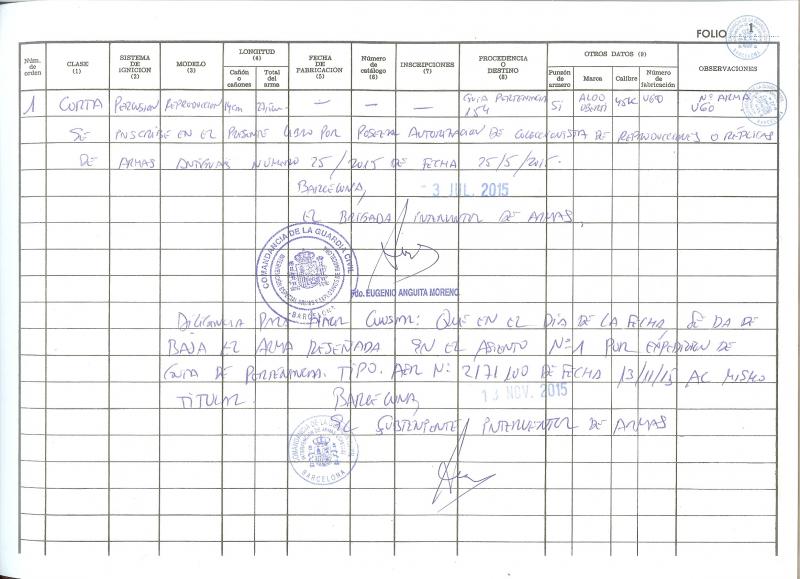 FOLIO 1
Núm. de orden
CLASE (1)
SISTEMA DE IGNICION (2)
MODELO (3)
LONGITUD (4)
Cañón o cañones
Total del arma
FECHA DE FABRICACIÓN (5)
Número de catálogo (6)
INSCRIPCIONES (7)
PROCEDENCIA O DESTINO (8)
OTROS DATOS (9)
Punzón de armero
Marca
Calibre
Número de fabricación
OBSERVACIONES
1 CORTA PERCUSION REPRODUCCION — — — GUIA PERTENENCIA 154 SI ALDO UBERTI Nº ARMA
SE INSCRIBE EN EL PRESENTE LIBRO POR POSEER AUTORIZACION DE COLECCIONISTA DE REPRODUCCIONES O RÉPLICAS
DE ARMAS ANTIGUAS NUMERO 25/2015 DE FECHA 25/5/2015.
BARCELONA, 3 JUL. 2015
EL BRIGADA INTERVENTOR DE ARMAS,
COMANDANCIA DE LA GUARDIA CIVIL
BARCELONA
Fdo. EUGENIO ANGUITA MORENO
DILIGENCIA PARA HACER CONSTAR: QUE EN EL DÍA DE LA FECHA SE DA DE
BAJA EL ARMA RESEÑADA EN EL ASIENTO Nº 1 POR EXPEDICION DE
GUIA DE PERTENENCIA. TIPO. AER Nº: 2171100 DE FECHA 13/11/15 AL MISMO
TITULAR. BARCELONA, 13 NOV. 2015
EL SUBTENIENTE INTERVENTOR DE ARMAS
COMANDANCIA DE LA GUARDIA CIVIL
BARCELONA